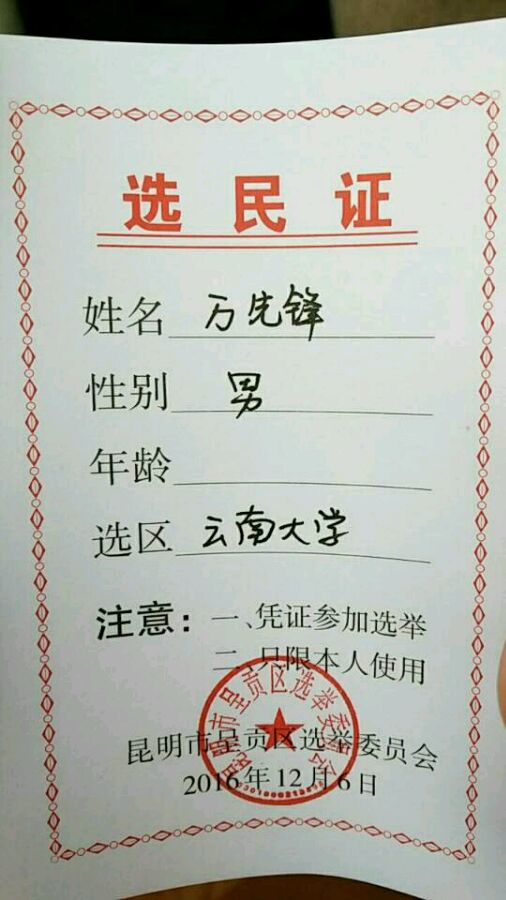 选民证
姓名 万先锋
性别 男
年龄
选区 云南大学
注意：一、凭证参加选举
二、只限本人使用
昆明市呈贡区选举委员会
2016年12月6日
昆明市呈贡区选举委员会